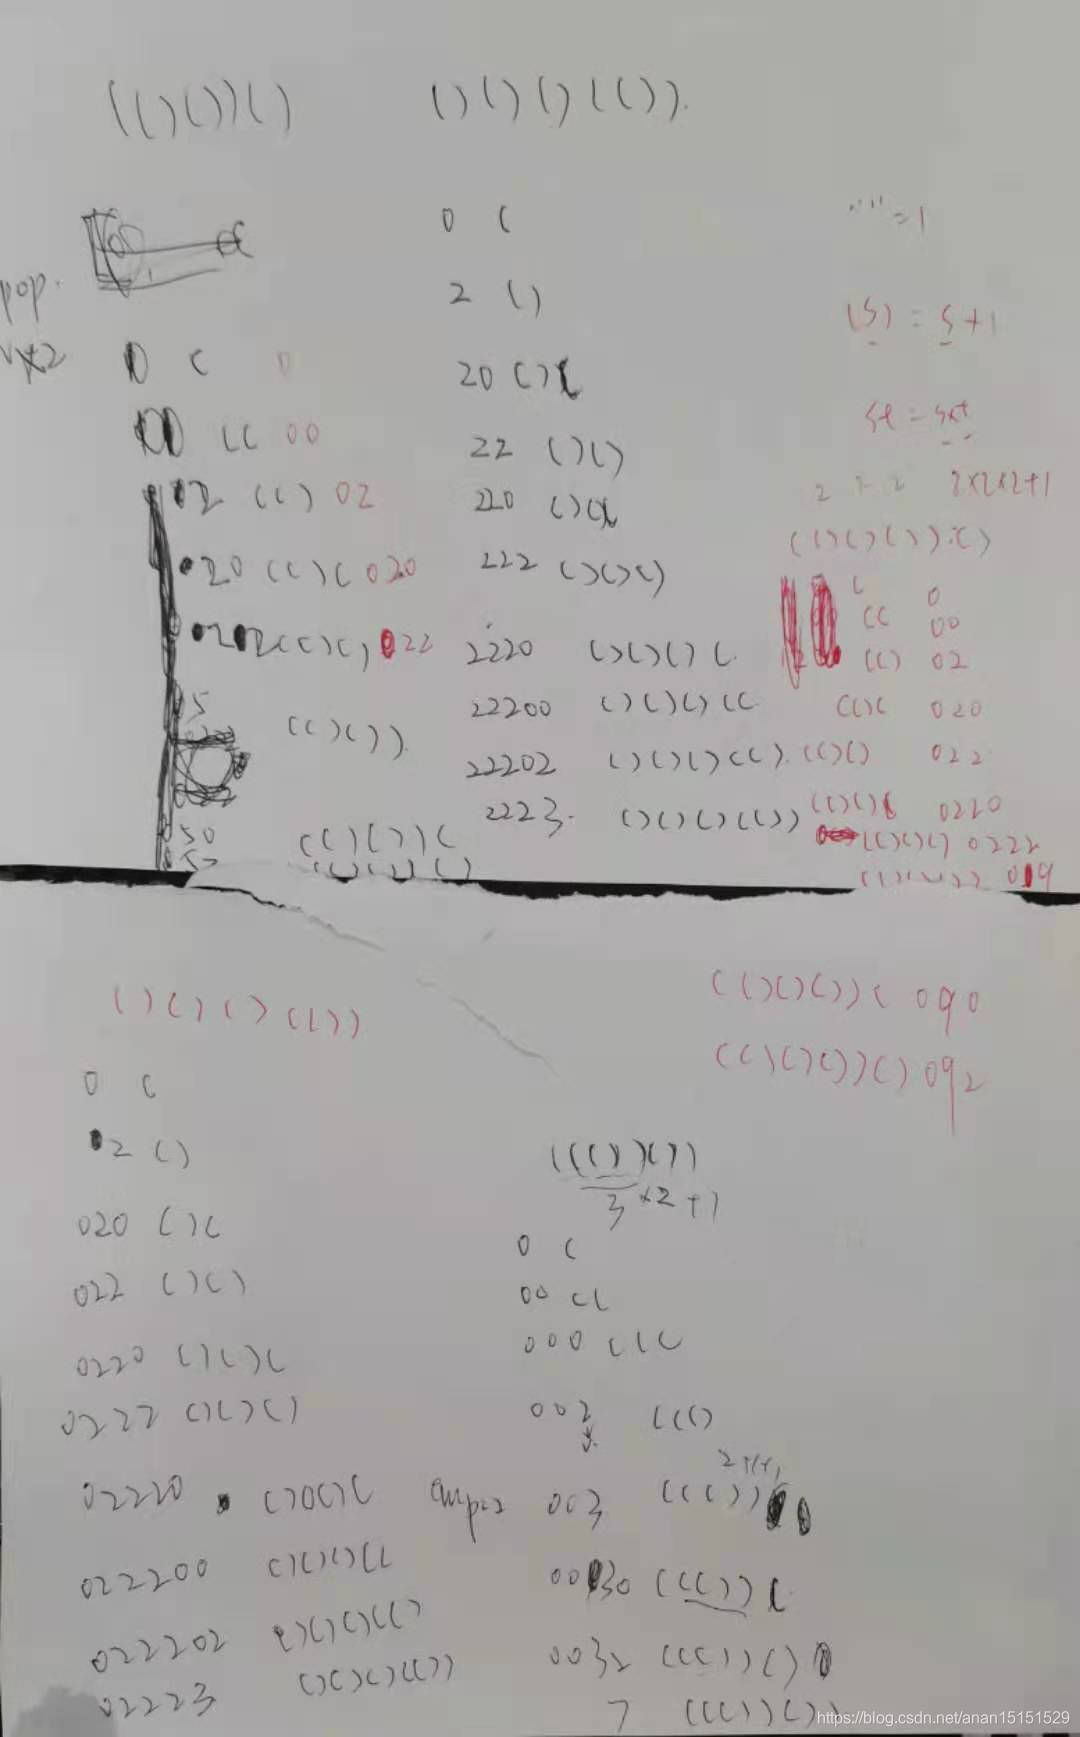 (()())() ()()()(()).
0 (
"" = 1
pop.
2 ()
(S) = S+1
0 ( 0
20 ()(
St = S×t
00 (( 00
22 ()()
2×2×2+1
02 (() 02
220 ()()(
(()()())()
020 (()( 020
222 ()()()
( 0
(( 00
022 (()() 022
2220 ()()()(
(() 02
5 (()())
22200 ()()()((
(()( 020
22202 ()()()(()
(()() 022
50 (()())(
2223 ()()()(())
(()()( 0220
52
(()()() 0222
019
()()()(())
(()()())( 090
0 (
(()()())() 092
2 ()
((())())
3 ×2 +1
020 ()(
0 (
022 ()()
00 ((
0220 ()()(
000 (((
0222 ()()()
002 ((()
02220 ()()()(
003 ((())
022200 ()()()((
0030 ((())(
022202 ()()()(()
0032 ((())()
02223 ()()()(())
7 ((())())
https://blog.csdn.net/anan15151529